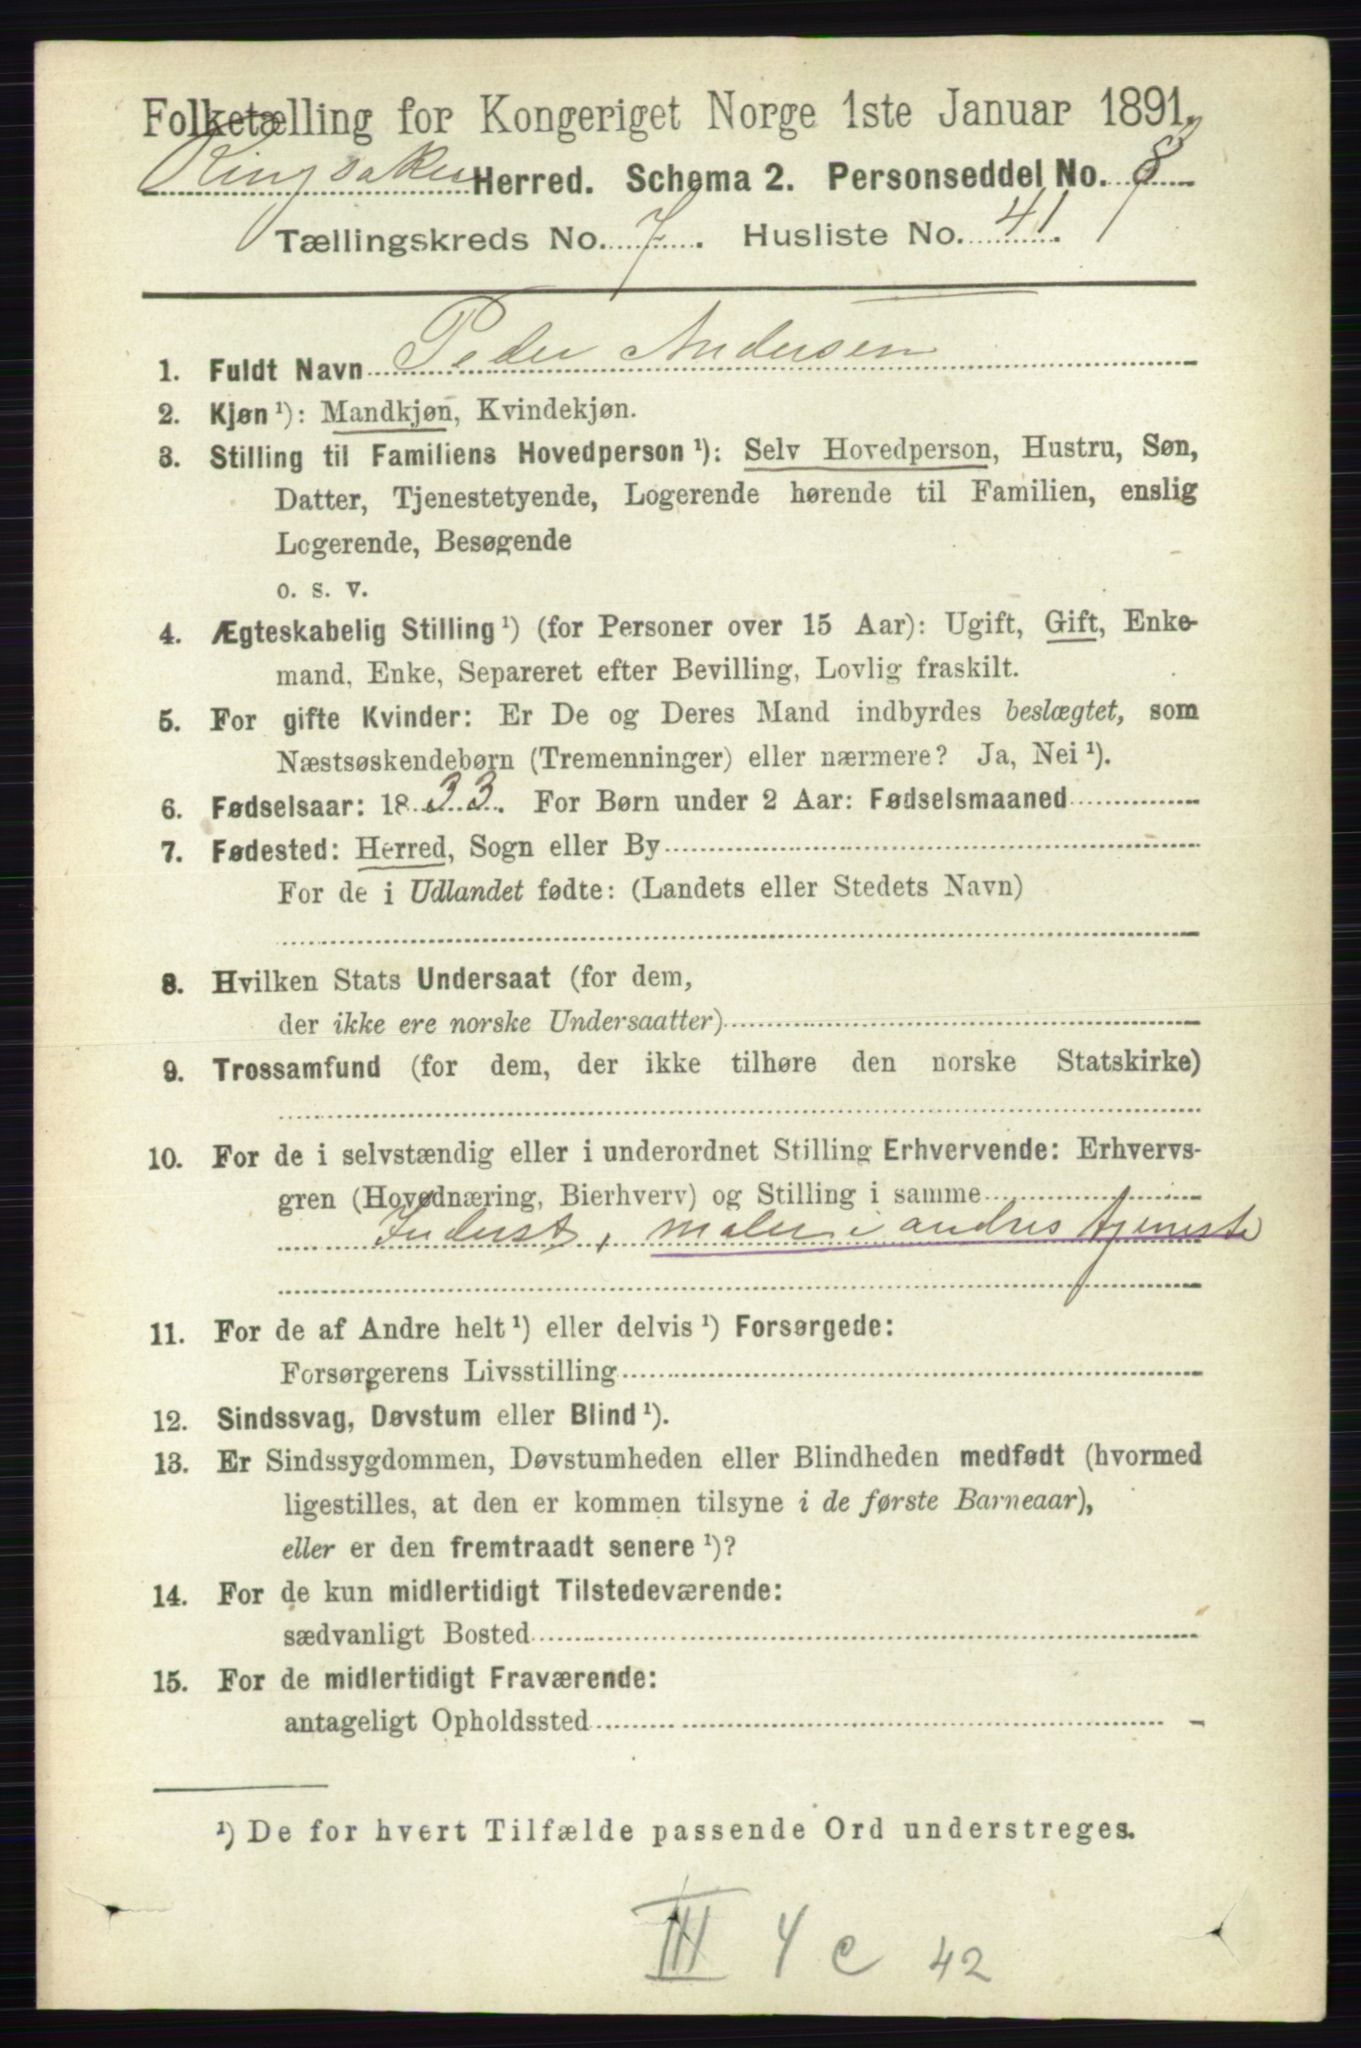 Folketælling for Kongeriget Norge 1ste Januar 1891.
Ringsaker Herred. Schema 2. Personseddel No. 8
Tællingskreds No. 7. Husliste No. 41.
1. Fuldt Navn Peder Andersen
2. Kjøn ¹): Mandkjøn, Kvindekjøn.
3. Stilling til Familiens Hovedperson ¹): Selv Hovedperson, Hustru, Søn,
Datter, Tjenestetyende, Logerende hørende til Familien, enslig
Logerende, Besøgende
o. s. v.
4. Ægteskabelig Stilling ¹) (for Personer over 15 Aar): Ugift, Gift, Enke-
mand, Enke, Separeret efter Bevilling, Lovlig fraskilt.
5. For gifte Kvinder: Er De og Deres Mand indbyrdes beslægtet, som
Næstsøskendebørn (Tremenninger) eller nærmere? Ja, Nei ¹).
6. Fødselsaar: 1833. For Børn under 2 Aar: Fødselsmaaned
7. Fødested: Herred, Sogn eller By
For de i Udlandet fødte: (Landets eller Stedets Navn)
8. Hvilken Stats Undersaat (for dem,
der ikke ere norske Undersaatter)
9. Trossamfund (for dem, der ikke tilhøre den norske Statskirke)
10. For de i selvstændig eller i underordnet Stilling Erhvervende: Erhvervs-
gren (Hovednæring, Bierhverv) og Stilling i samme
Indust, maler i andres tjeneste
11. For de af Andre helt ¹) eller delvis ¹) Forsørgede:
Forsørgerens Livsstilling
12. Sindssvag, Døvstum eller Blind ¹).
13. Er Sindssygdommen, Døvstumheden eller Blindheden medfødt (hvormed
ligestilles, at den er kommen tilsyne i de første Barneaar),
eller er den fremtraadt senere ¹)?
14. For de kun midlertidigt Tilstedeværende:
sædvanligt Bosted
15. For de midlertidigt Fraværende:
antageligt Opholdssted
¹) De for hvert Tilfælde passende Ord understreges.
III 4 c 42